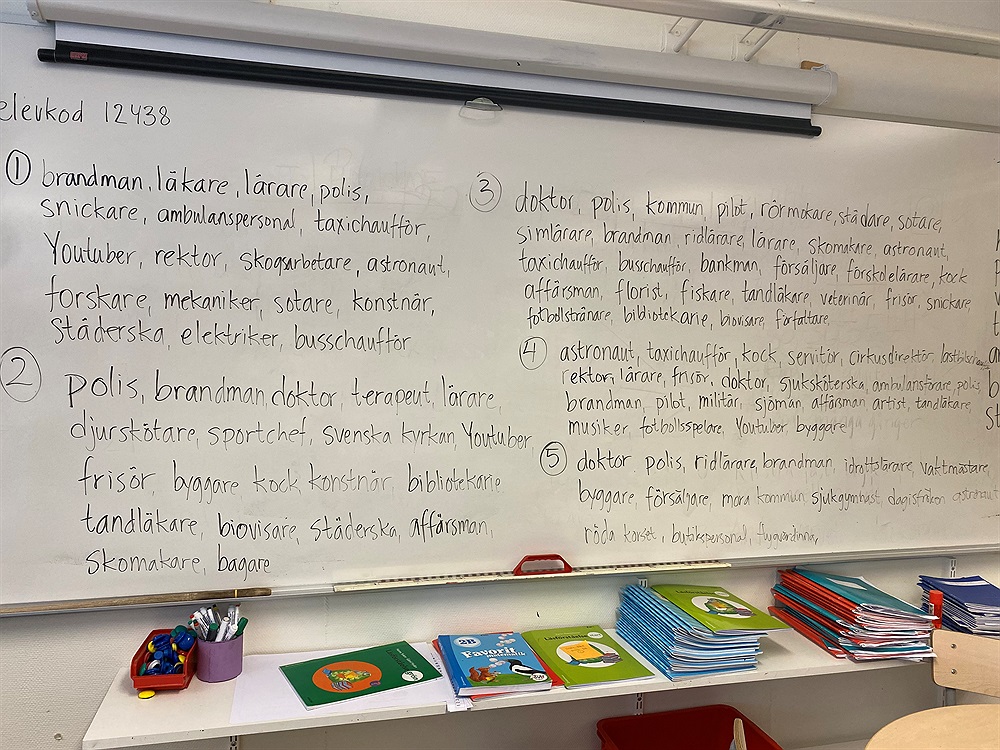 elevkod 12438
① brandman, läkare, lärare, polis,
snickare, ambulanspersonal, taxichaufför,
Youtuber, rektor, skogsarbetare, astronaut,
forskare, mekaniker, sotare, konstnär,
städerska, elektriker, busschaufför
② polis, brandman, doktor, terapeut, lärare,
djurskötare, sportchef, svenska kyrkan, Youtuber,
frisör, byggare, kock, konstnär, bibliotekarie,
tandläkare, biovisare, städerska, affärsman,
skomakare, bagare
③ doktor, polis, kommun, pilot, rörmokare, städare, sotare,
simlärare, brandman, ridlärare, lärare, skomakare, astronaut,
taxichaufför, busschaufför, bankman, försäljare, förskolelärare, kock
affärsman, florist, fiskare, tandläkare, veterinär, frisör, snickare,
fotbollstränare, bibliotekarie, biovisare, författare,
④ astronaut, taxichaufför, kock, servitör, cirkusdirektör,
rektor, lärare, frisör, doktor, sjuksköterska, ambulansförare, polis
brandman, pilot, militär, sjöman, affärsman, artist, tandläkare,
musiker, fotbollsspelare, Youtuber, byggare
⑤ doktor, polis, ridlärare, brandman, idrottslärare, vaktmästare,
byggare, försäljare, mora kommun, sjukgymnast, dagisfröken, astronaut
röda korset, butikspersonal, flygvärdinna,
2B
Favorit
matematik
Läsförståelse